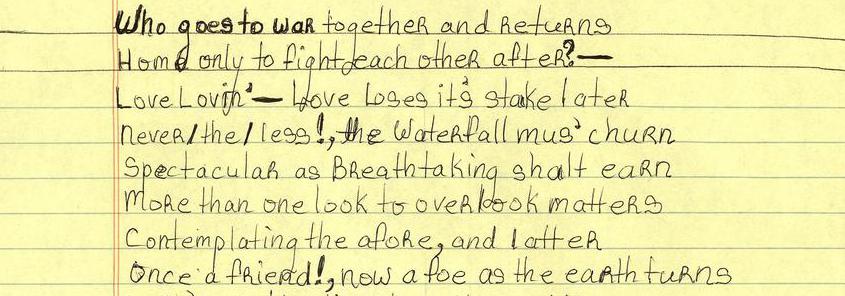 Who goes to war together and Returns
Home only to fight each other after?—
Love Lovin'— Love Loses it's stake later
never/the/less!, the Waterfall mus' churn
Spectacular as Breathtaking shalt earn
More than one look to overlook matters
Contemplating the afore, and latter
Once a friend!, now a foe as the earth turns